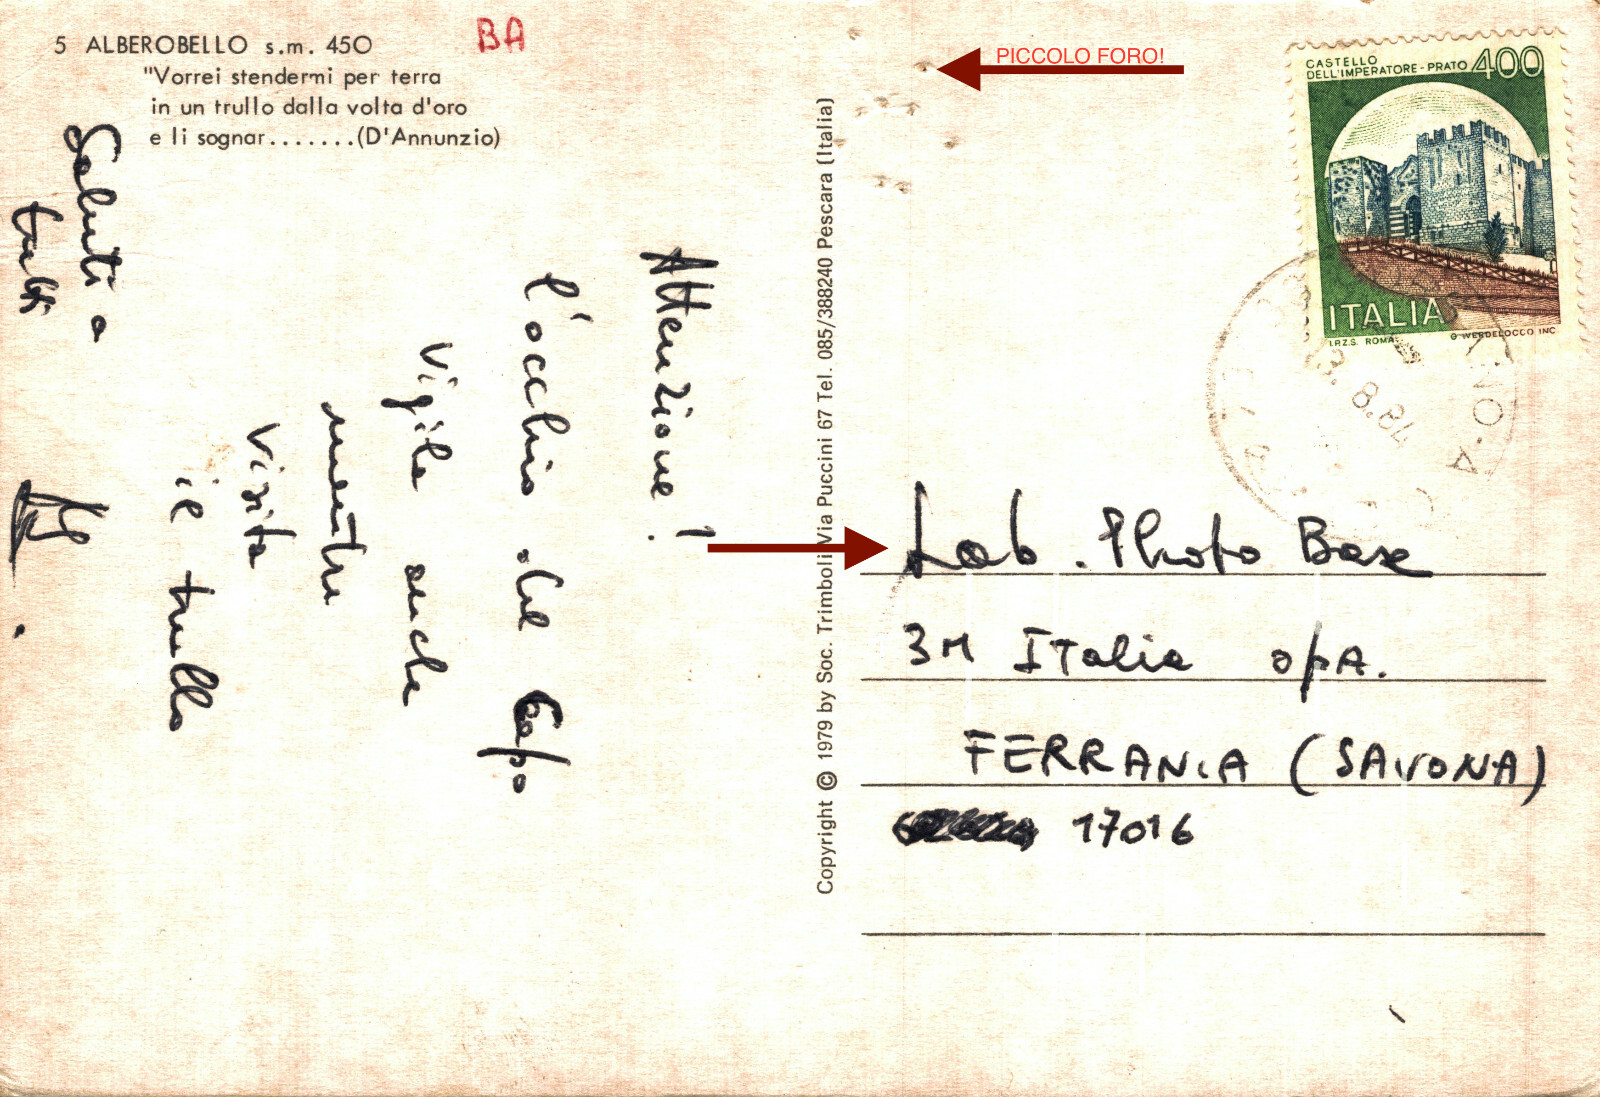 5 ALBEROBELLO s.m. 450
"Vorrei stendermi per terra
in un trullo dalla volta d'oro
e li sognar.......(D'Annunzio)
BA
PICCOLO FORO!
CASTELLO
DELL'IMPERATORE-PRATO 400
ITALIA
I.P.Z.S. ROMA
G VERDELOCCO INC.
8.84
Attenzione!
l'occhio del Capo
Vigila anche
mentre
visita
il trullo
Saluti a
tutti
Copyright © 1979 by Soc. Trimboli Via Puccini 67 Tel. 085/388240 Pescara (Italia)
Lab. Photo Base
3M ITalia spA.
FERRANIA (SAVONA)
17016